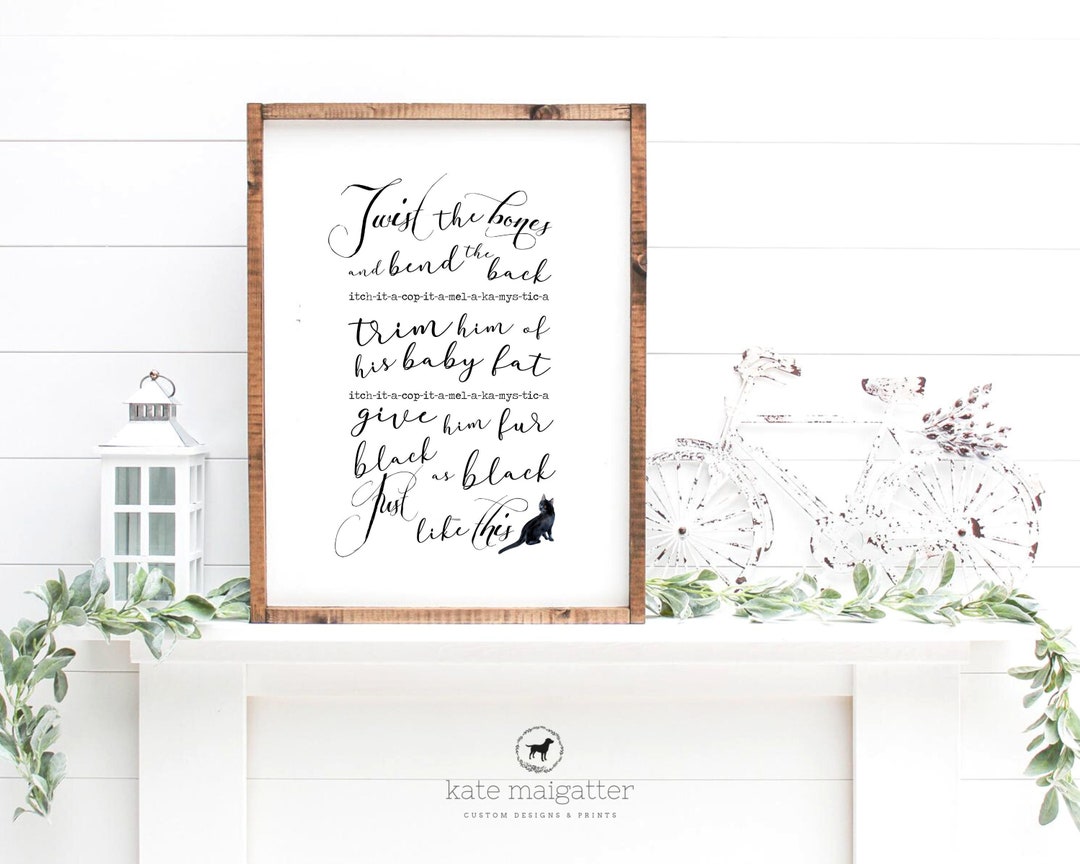 Twist the bones
and bend the back
itch-it-a-cop-it-a-mel-a-ka-mys-tic-a
trim him of
his baby fat
itch-it-a-cop-it-a-mel-a-ka-mys-tic-a
give him fur
black as black
Just like this
kate maigatter
CUSTOM DESIGNS & PRINTS